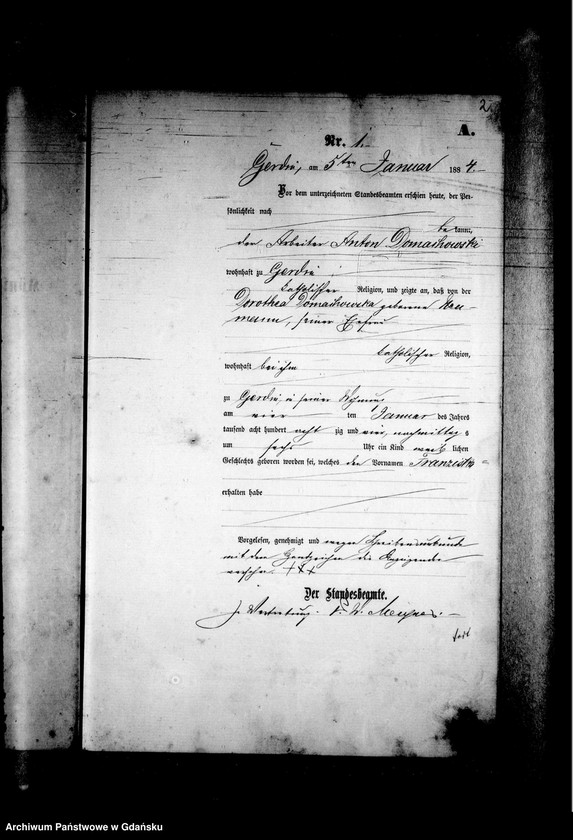 2
A.
Nr. 1.
Gerdin, am 5ten Januar 1884
Vor dem unterzeichneten Standesbeamten erschien heute, der Per-
sönlichkeit nach
be kannt,
den Arbeiter Anton Domachowski
wohnhaft zu Gerdin
katholischer Religion, und zeigte an, daß von der
Dorothea Domachowska geborene Neu-
mann, seiner Ehefrau
katholischer Religion,
wohnhaft bei ihm
zu Gerdin in seiner Wohnung
am vier ten Januar des Jahres
tausend acht hundert acht zig und vier, nachmittag s
um sechs Uhr ein Kind weib lichen
Geschlechts geboren worden sei, welches den Vornamen Franziska
erhalten habe
Vorgelesen, genehmigt und wegen Schreibensunkunde
mit den Handzeichen des Anzeigenden
versehen +++
Der Standesbeamte.
In Vertretung.
Archiwum Państwowe w Gdańsku